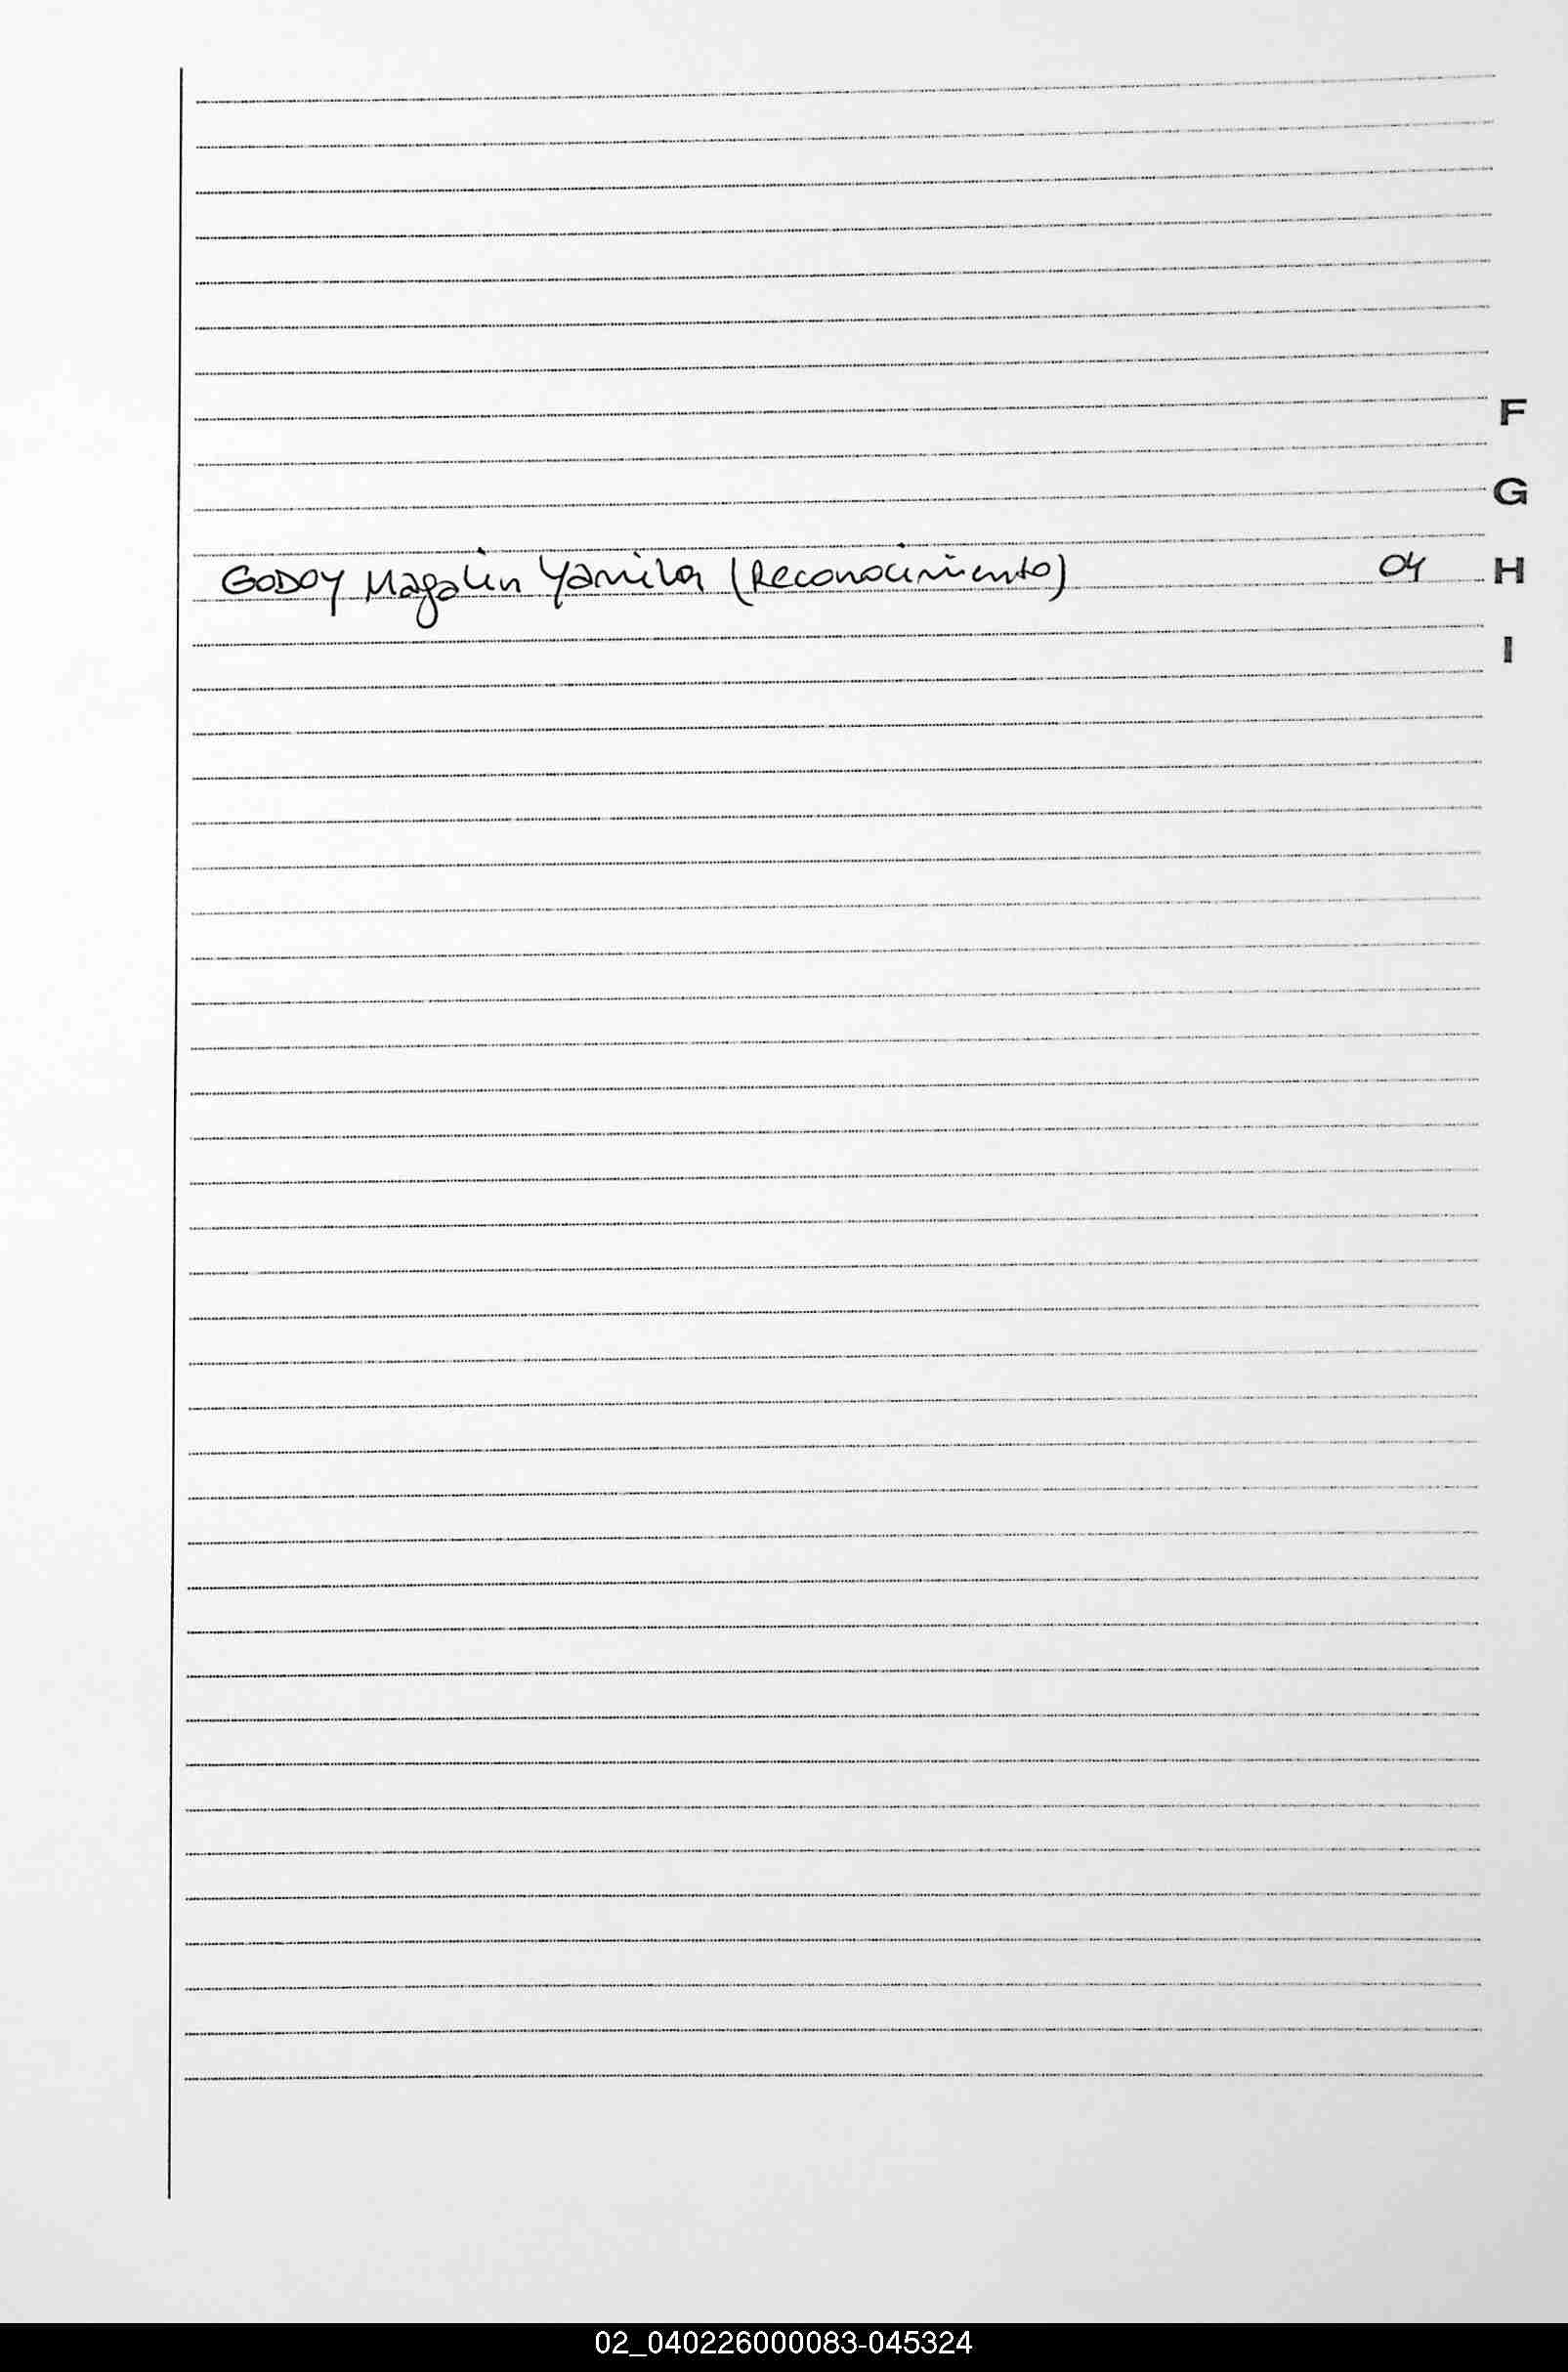 F
G
GODOY Magalin Yamila (Reconocimiento) 04 H
I
02_040226000083-045324